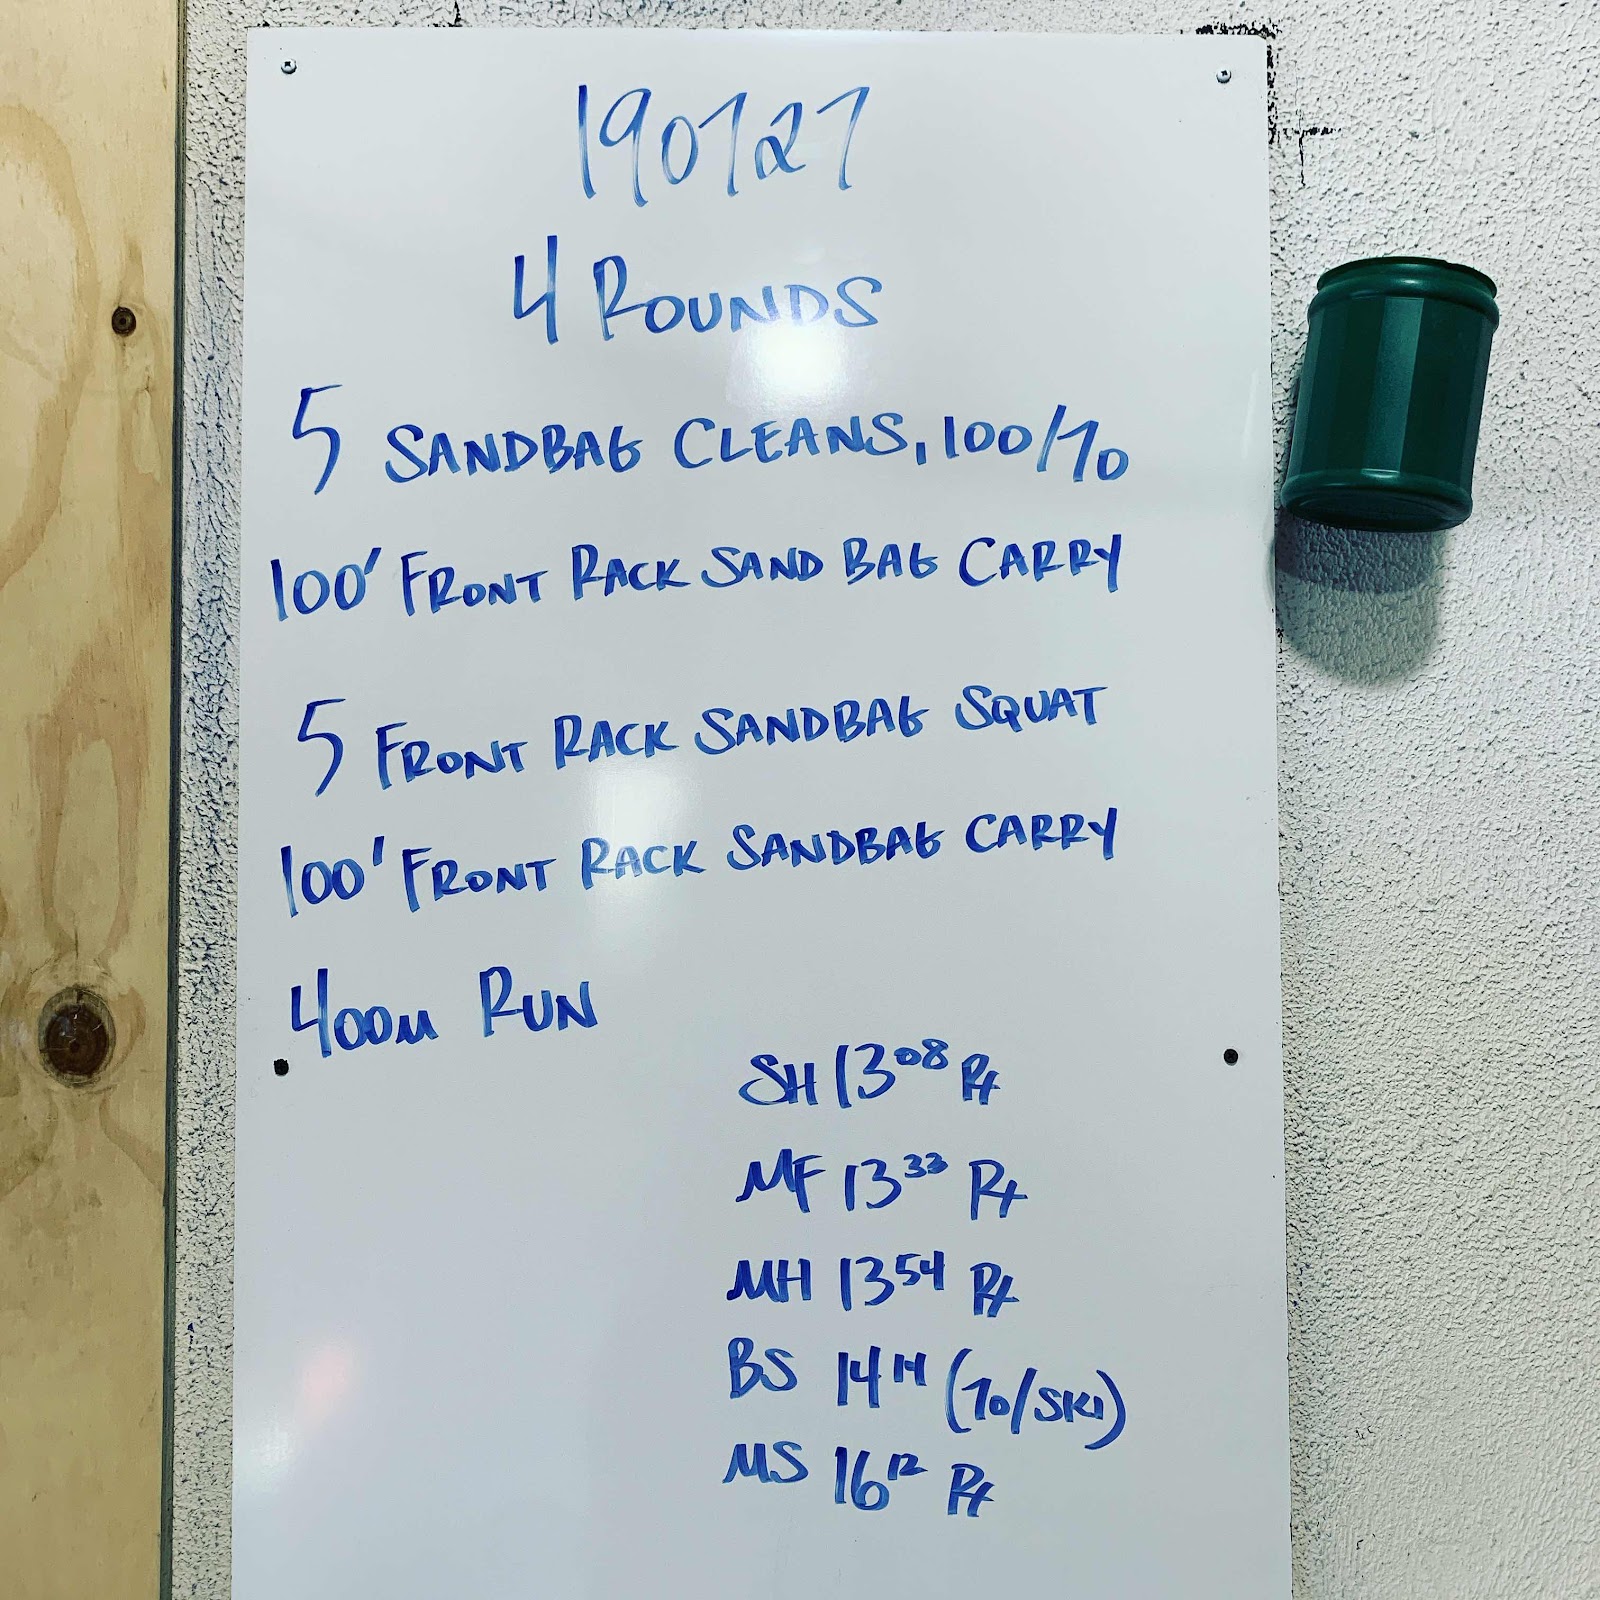 190727
4 ROUNDS
5 SANDBAG CLEANS, 100/70
100' FRONT RACK SAND BAG CARRY
5 FRONT RACK SANDBAG SQUAT
100' FRONT RACK SANDBAG CARRY
400M RUN
SH 13 08 Rx
MF 13 33 Rx
MH 13 54 Rx
BS 14 14 (70/SKI)
MS 16 12 Rx